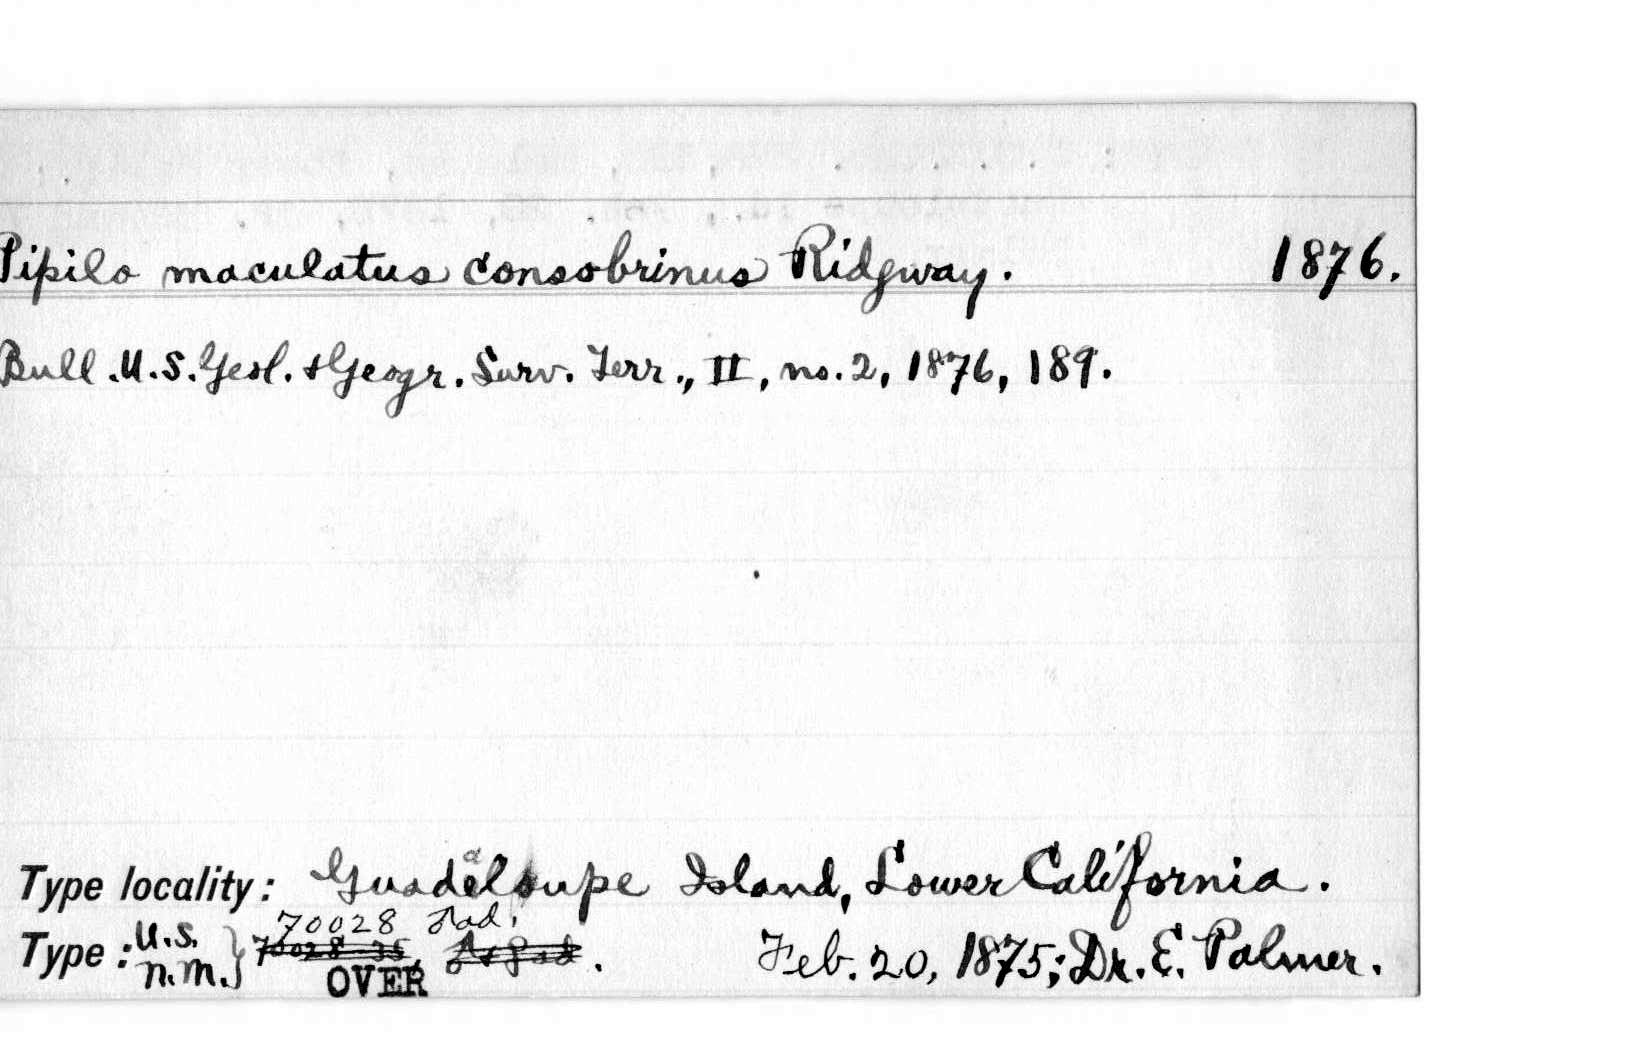 Pipilo maculatus consobrinus Ridgway. 1876.
Bull. U.S. Geol. & Geogr. Surv. Terr., II, no. 2, 1876, 189.
Type locality: Guadaloupe Island, Lower California.
70028 ad.
Type: U.S. N.M.} 70028-35, . Feb. 20, 1875; Dr. E. Palmer.
OVER